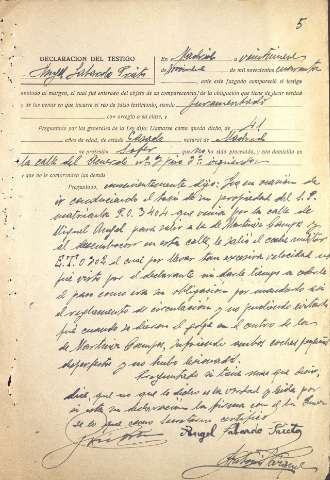 5
DECLARACION DEL TESTIGO
En Madrid a veintinueve
Angel Fabardo Prieto
de Noviembre de mil novecientos cuarenta
ante este Juzgado compareció el testigo
anotado al margen, el cual fué enterado del objeto de su comparecencia, de la obligación que tiene de decir verdad
y de las penas en que incurre el reo de falso testimonio, siendo juramentado
con arreglo a su clase, y
Preguntado por las generales de la ley dijo: Llamarse como queda dicho, de 41
años de edad, de estado Casado natural de Madrid
de profesión Chofer que no ha sido procesado, y con domicilio en
la calle del General nº 2 piso 3º izquierda
y que no le comprenden las demás
Preguntado, convenientemente dijo: Que en ocasión de
ir conduciendo el taxi de su propiedad del S.P.
matrícula P.O. 3404 que venía por la calle de
Miguel Angel, para salir a la de Martinez Campos y
al desembocar en esta calle, le salió el coche militar
E.T. 0702 el cual por llevar tan excesiva velocidad no
fué visto por el declarante ni darle tiempo a cederle
el paso como era su obligación por mandarlo así
el reglamento de circulación y no pudiendo evitarlo
fué cuando se dieron el golpe en el centro de la
de Martinez Campos, sufriendo ambos coches pequeños
desperfectos y no hubo lesionado.
Preguntado si tiene mas que decir,
dijo, que no que lo dicho es la verdad y leida por
si esta su declaración la firma con el Sr. Juez
de lo que como Secretario certifico
Angel Fabardo Prieto